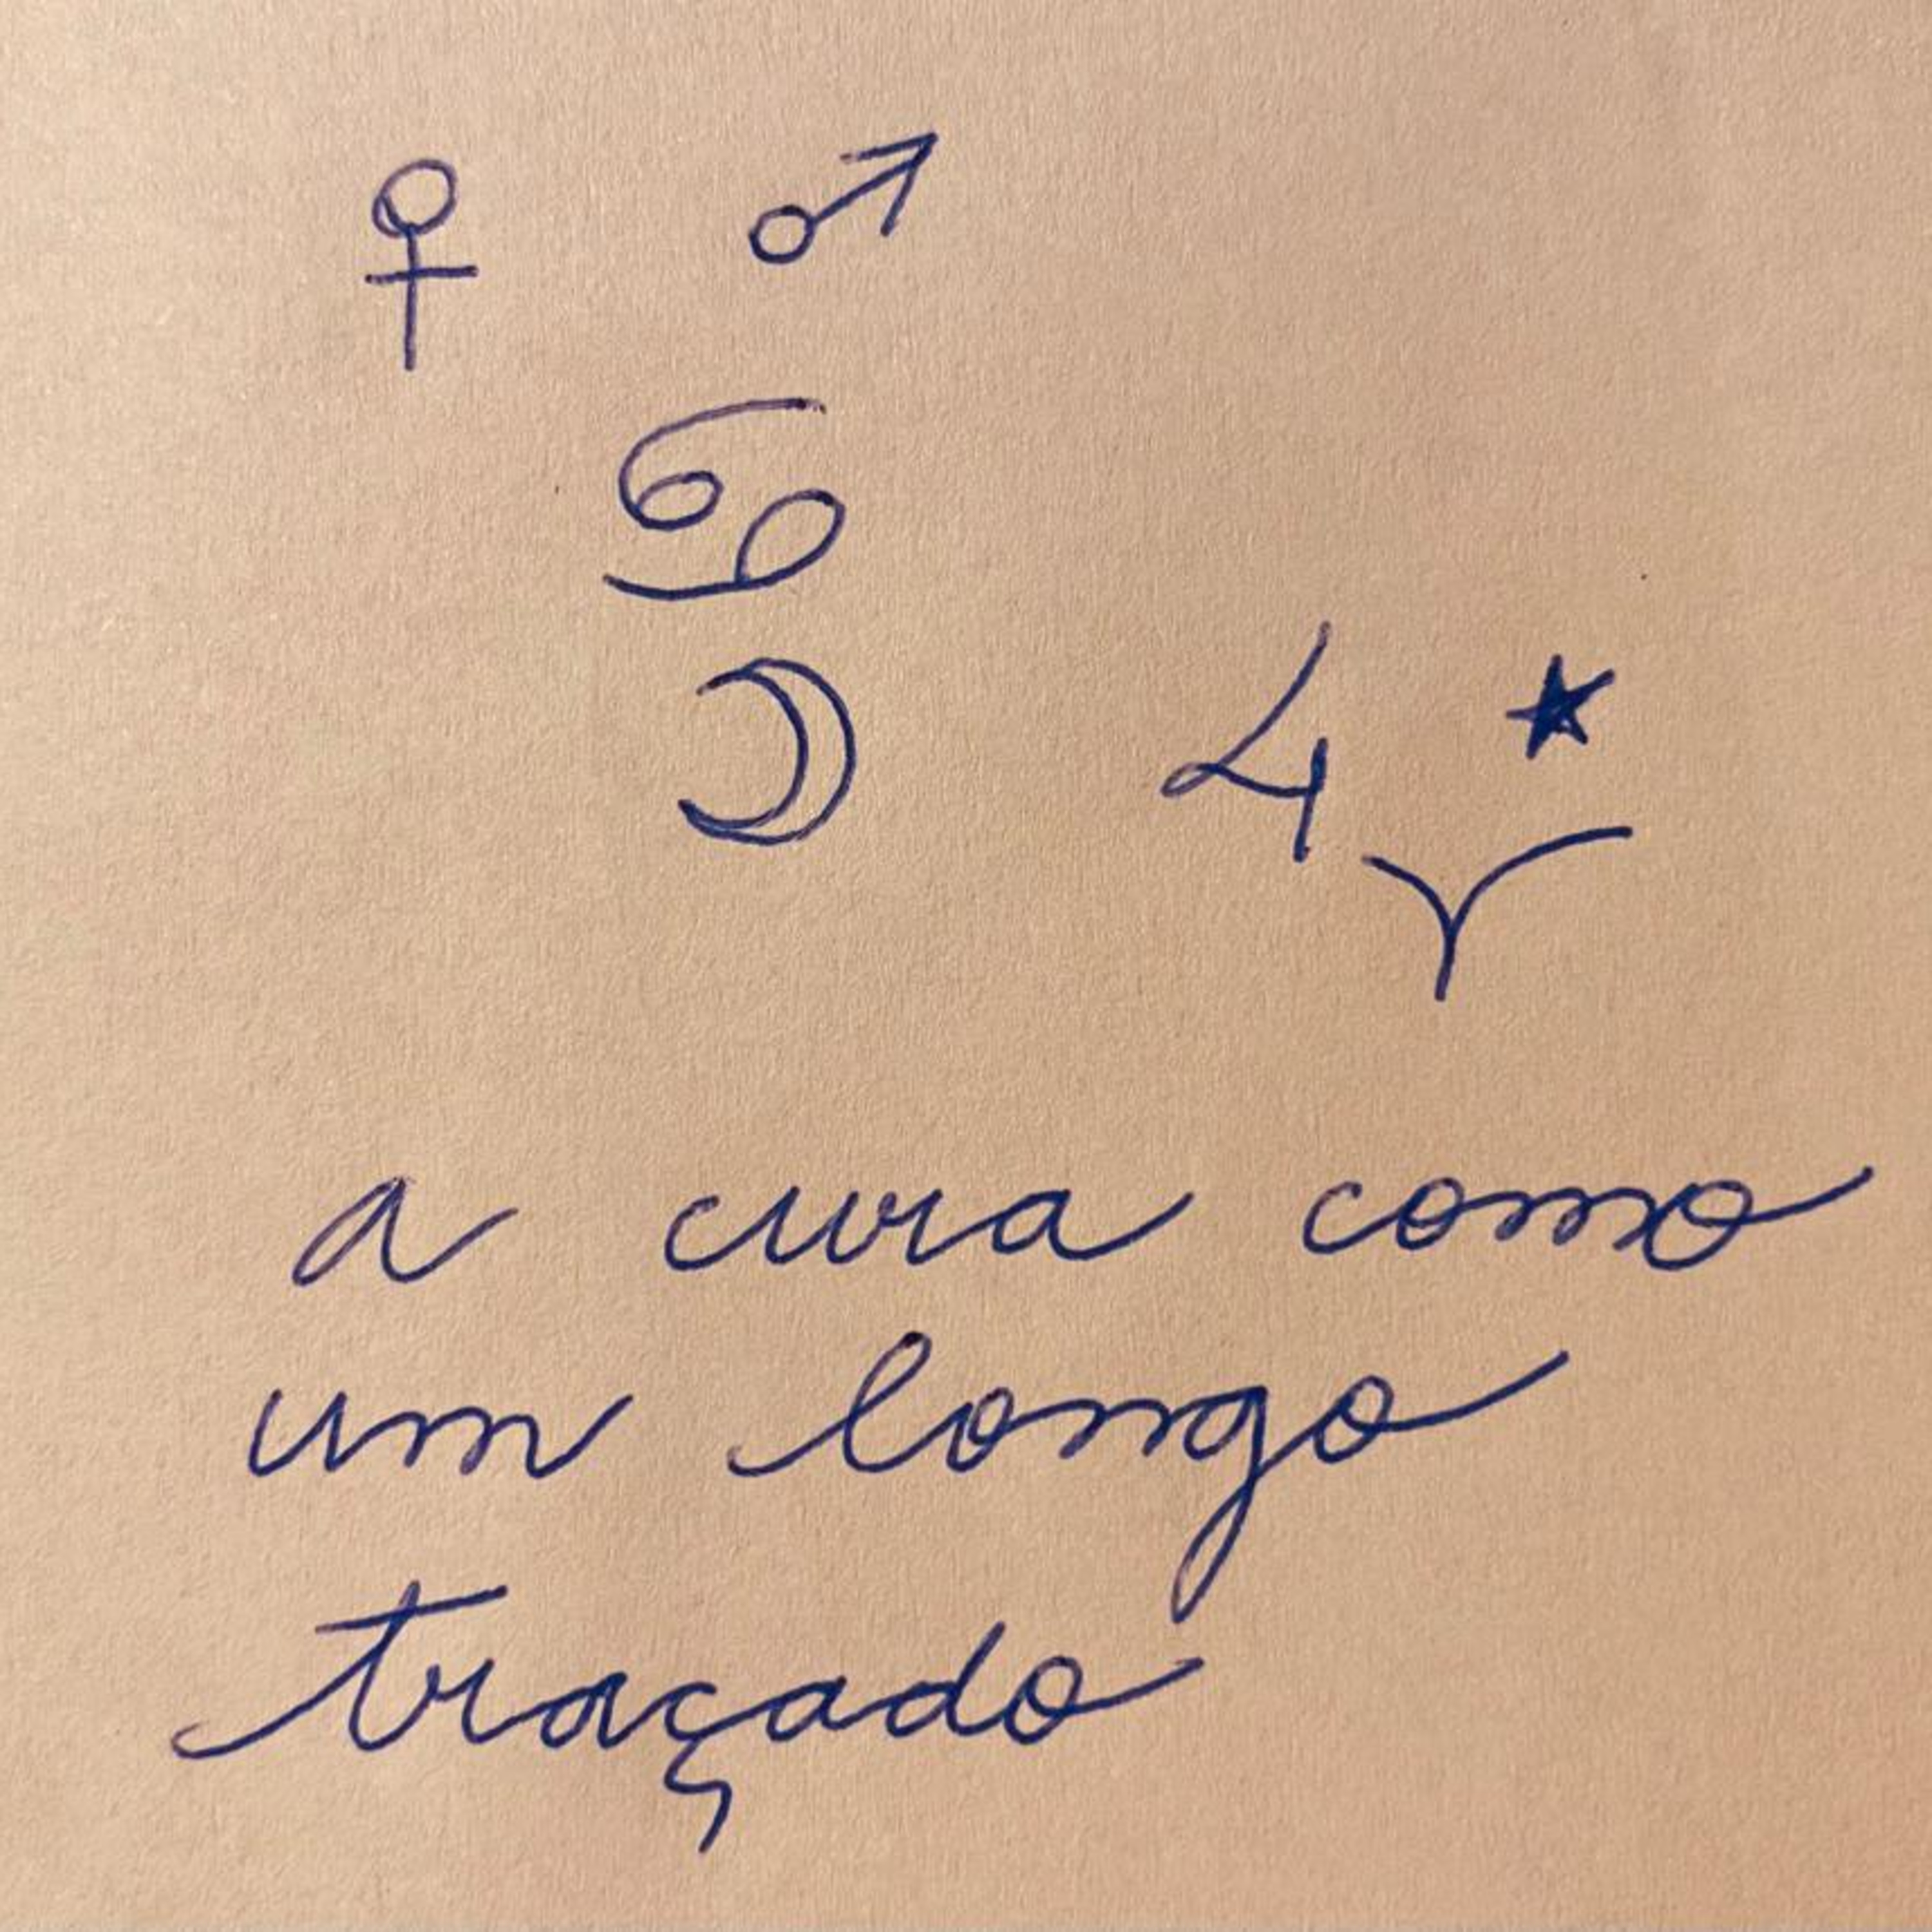 ♀ ♂
♋
☽ ♃ ★
♈
a cura como
um longo
traçado